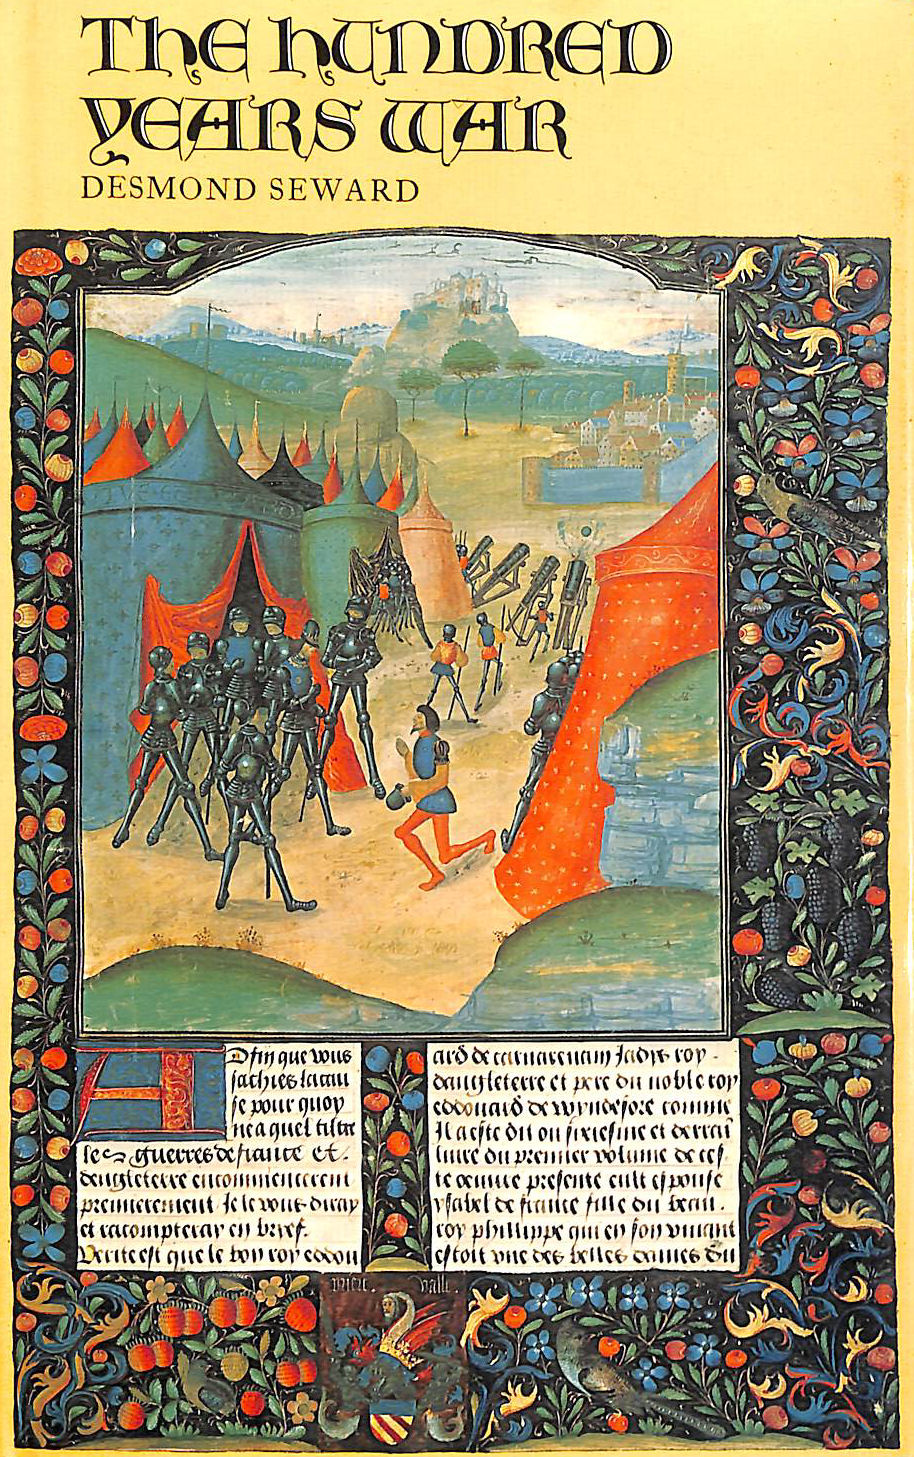 THE HUNDRED
YEARS WAR
DESMOND SEWARD
ADfin que vous
sachies la cau
se pour quoy
ne a quel tiltre
les guerres de france et.
dengleterre encommencerent
premierement. Je le vous diray
et racompteray en brief.
Verite est que le bon roy edou
ard de Jadis roy.
dangleterre et pere du noble roy
edouard de wyndesore comme
Il a este dit ou sixiesme et
livre du premier volume de ces
te oeuure presente eult espouse
ysabel de france fille du beau.
roy phillippe qui en son viuant
estoit vne des belles dames du